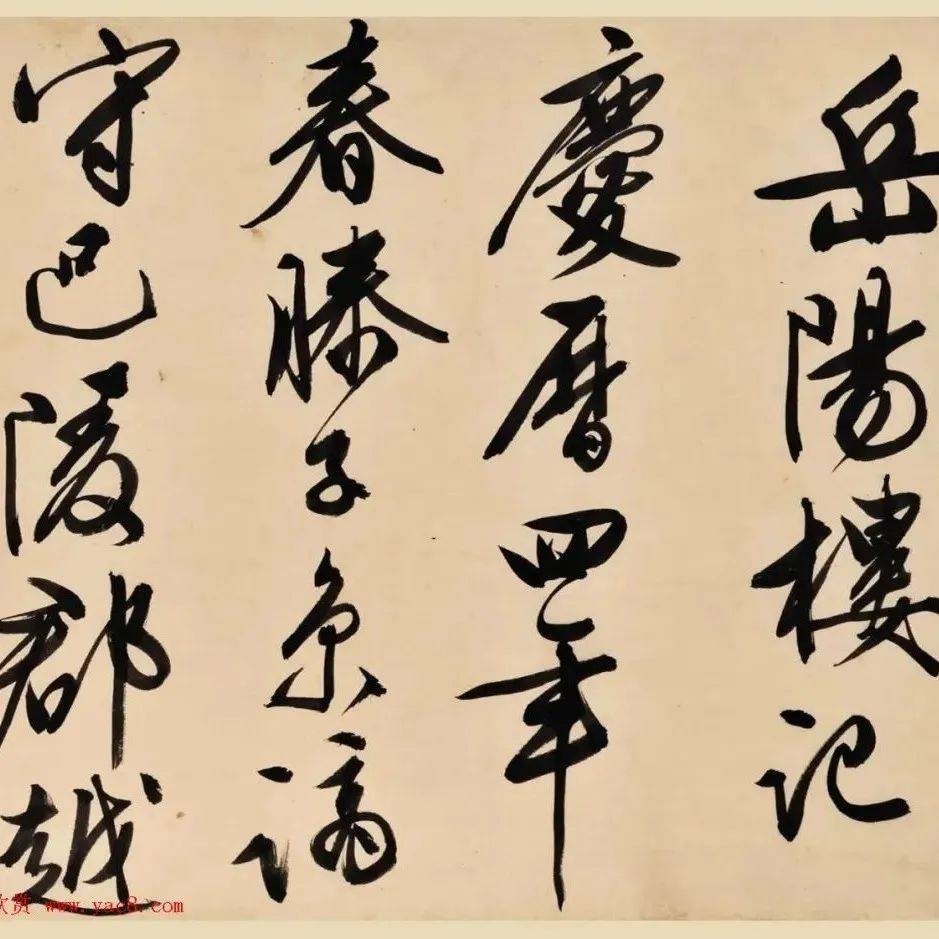 岳陽樓記
慶曆四年
春滕子京謫
守巴陵郡越
欣赏 www.yac8.com